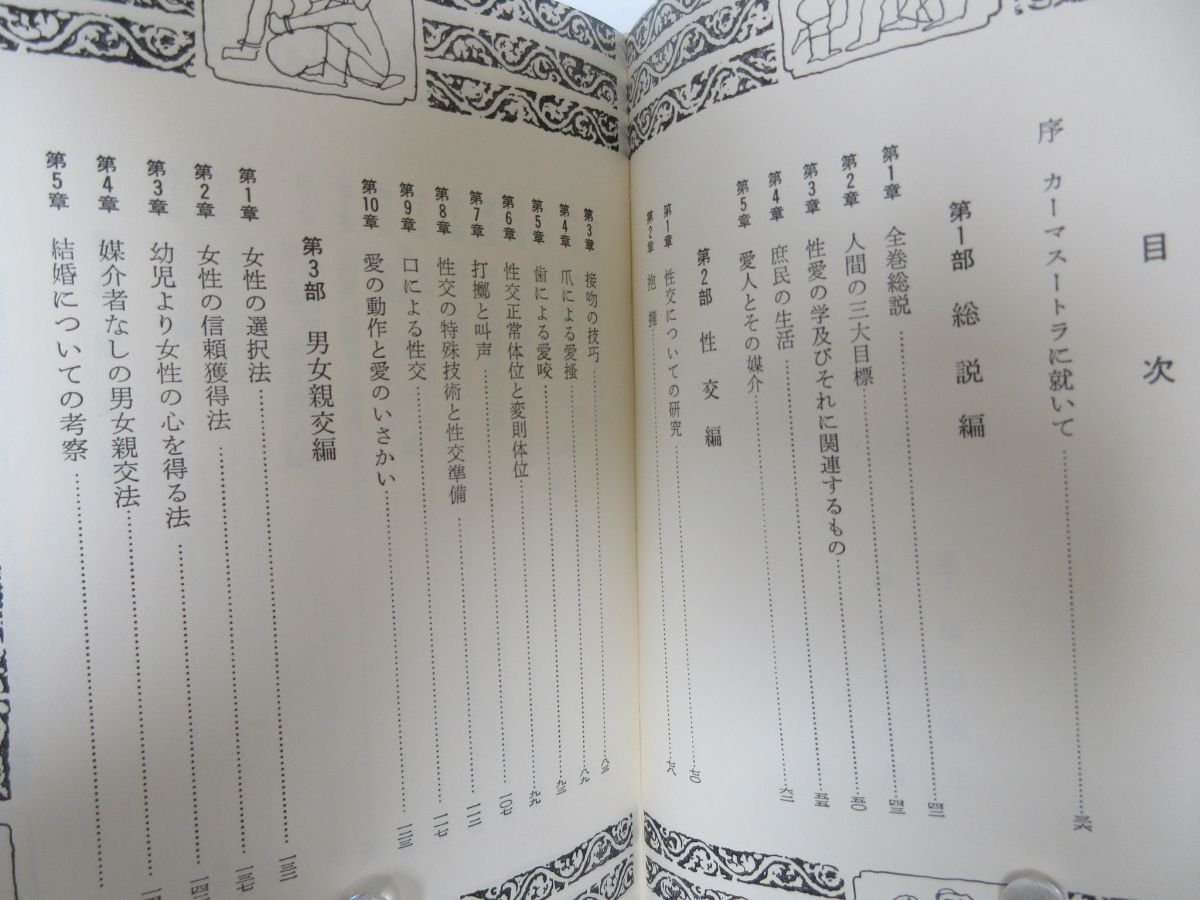 目次
序 カーマスートラに就いて……三六
第1部 総説編
第1章 全巻総説……四二
第2章 人間の三大目標……四三
第3章 性愛の学及びそれに関連するもの……五〇
第4章 庶民の生活……五五
第5章 愛人とその媒介……六二
第2部 性交編
第1章 性交についての研究……七〇
第2章 抱擁……七八
第3章 接吻の技巧……八三
第4章 爪による愛掻……八九
第5章 歯による愛咬……九三
第6章 性交正常体位と変則体位……九九
第7章 打擲と叫声……一〇七
第8章 性交の特殊技術と性交準備……一一二
第9章 口による性交……一一七
第10章 愛の動作と愛のいさかい……一二三
第3部 男女親交編
第1章 女性の選択法……一三二
第2章 女性の信頼獲得法……一三七
第3章 幼児より女性の心を得る法……一四二
第4章 媒介者なしの男女親交法……
第5章 結婚についての考察……